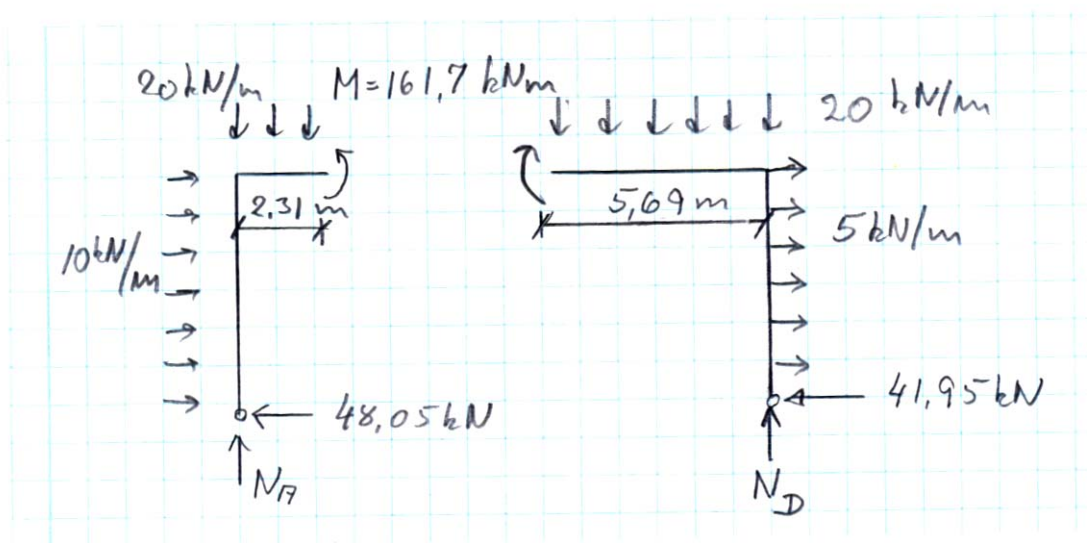 20 kN/m
M=161,7 kNm
20 kN/m
2,31 m
5,69 m
10 kN/m
5 kN/m
48,05 kN
41,95 kN
N_A
N_D